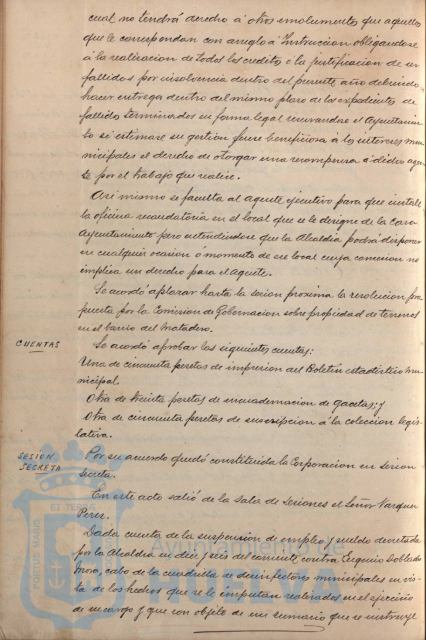 cual no tendrá derecho á otros emolumentos que aquellos
que le correspondan con arreglo á Instrucción obligandose
á la realización de todos los creditos ó la justificación de
fallidos por insolvencia dentro del presente año debiendo
hacer entrega dentro del mismo plazo de los expedientes de
fallidos terminados en forma legal reservandose el Ayuntamien
to si estimare su gestión fuere beneficiosa á los intereses mu
nicipales el derecho de otorgar una recompensa á dicho agen
te por el trabajo que realice.
Asi mismo se faculta al agente ejecutivo para que instale
la oficina recaudatoria en el local que se le designe de la Casa
Ayuntamiento pero entendiendose que la Alcaldía podrá disponer
en cualquier ocasión ó momento de ese local cuya concesion no
implica un derecho para el agente.
Se acordó aplazar hasta la sesión proxima la resolucion pro
puesta por la Comision de Gobernacion sobre propiedad de terrenos
en el barrio del Matadero.
CUENTAS
Se acordó aprobar las siguientes cuentas:
Una de cincuenta pesetas de impresion del Boletin estadistico mu
nicipal.
Otra de treinta pesetas de encuadernacion de gacetas; y
Otra de cincuenta pesetas de suscripcion á la coleccion legis
lativa.
SESIÓN
SECRETA
Por su acuerdo quedó constituida la Corporacion en sesion
secreta.
En este acto salió de la Sala de Sesiones el Señor Vazquez
Perez.
Dada cuenta de la suspension de empleo y sueldo decretada
por la Alcaldia en diez y seis del corriente contra Eugenio Doblado
Mora, cabo de la cuadrilla de desinfectores municipales en vis
ta de los hechos que se le imputan realizados en el ejercicio
de su cargo y que son objeto de un sumario que se instruye
PORTUS MARIS
ET TERRAE
Ayuntamiento de